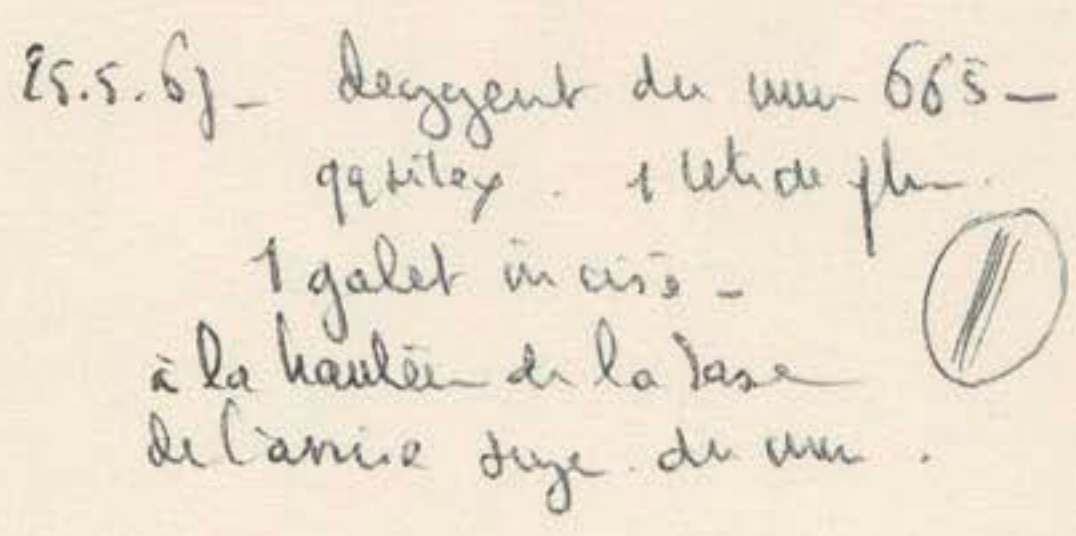 25.5.67 - Degagent du mur 665 -
qq silex. 1 tete de
1 galet incisé -
à la hauteur de la base
de l'assise supe. du mur.